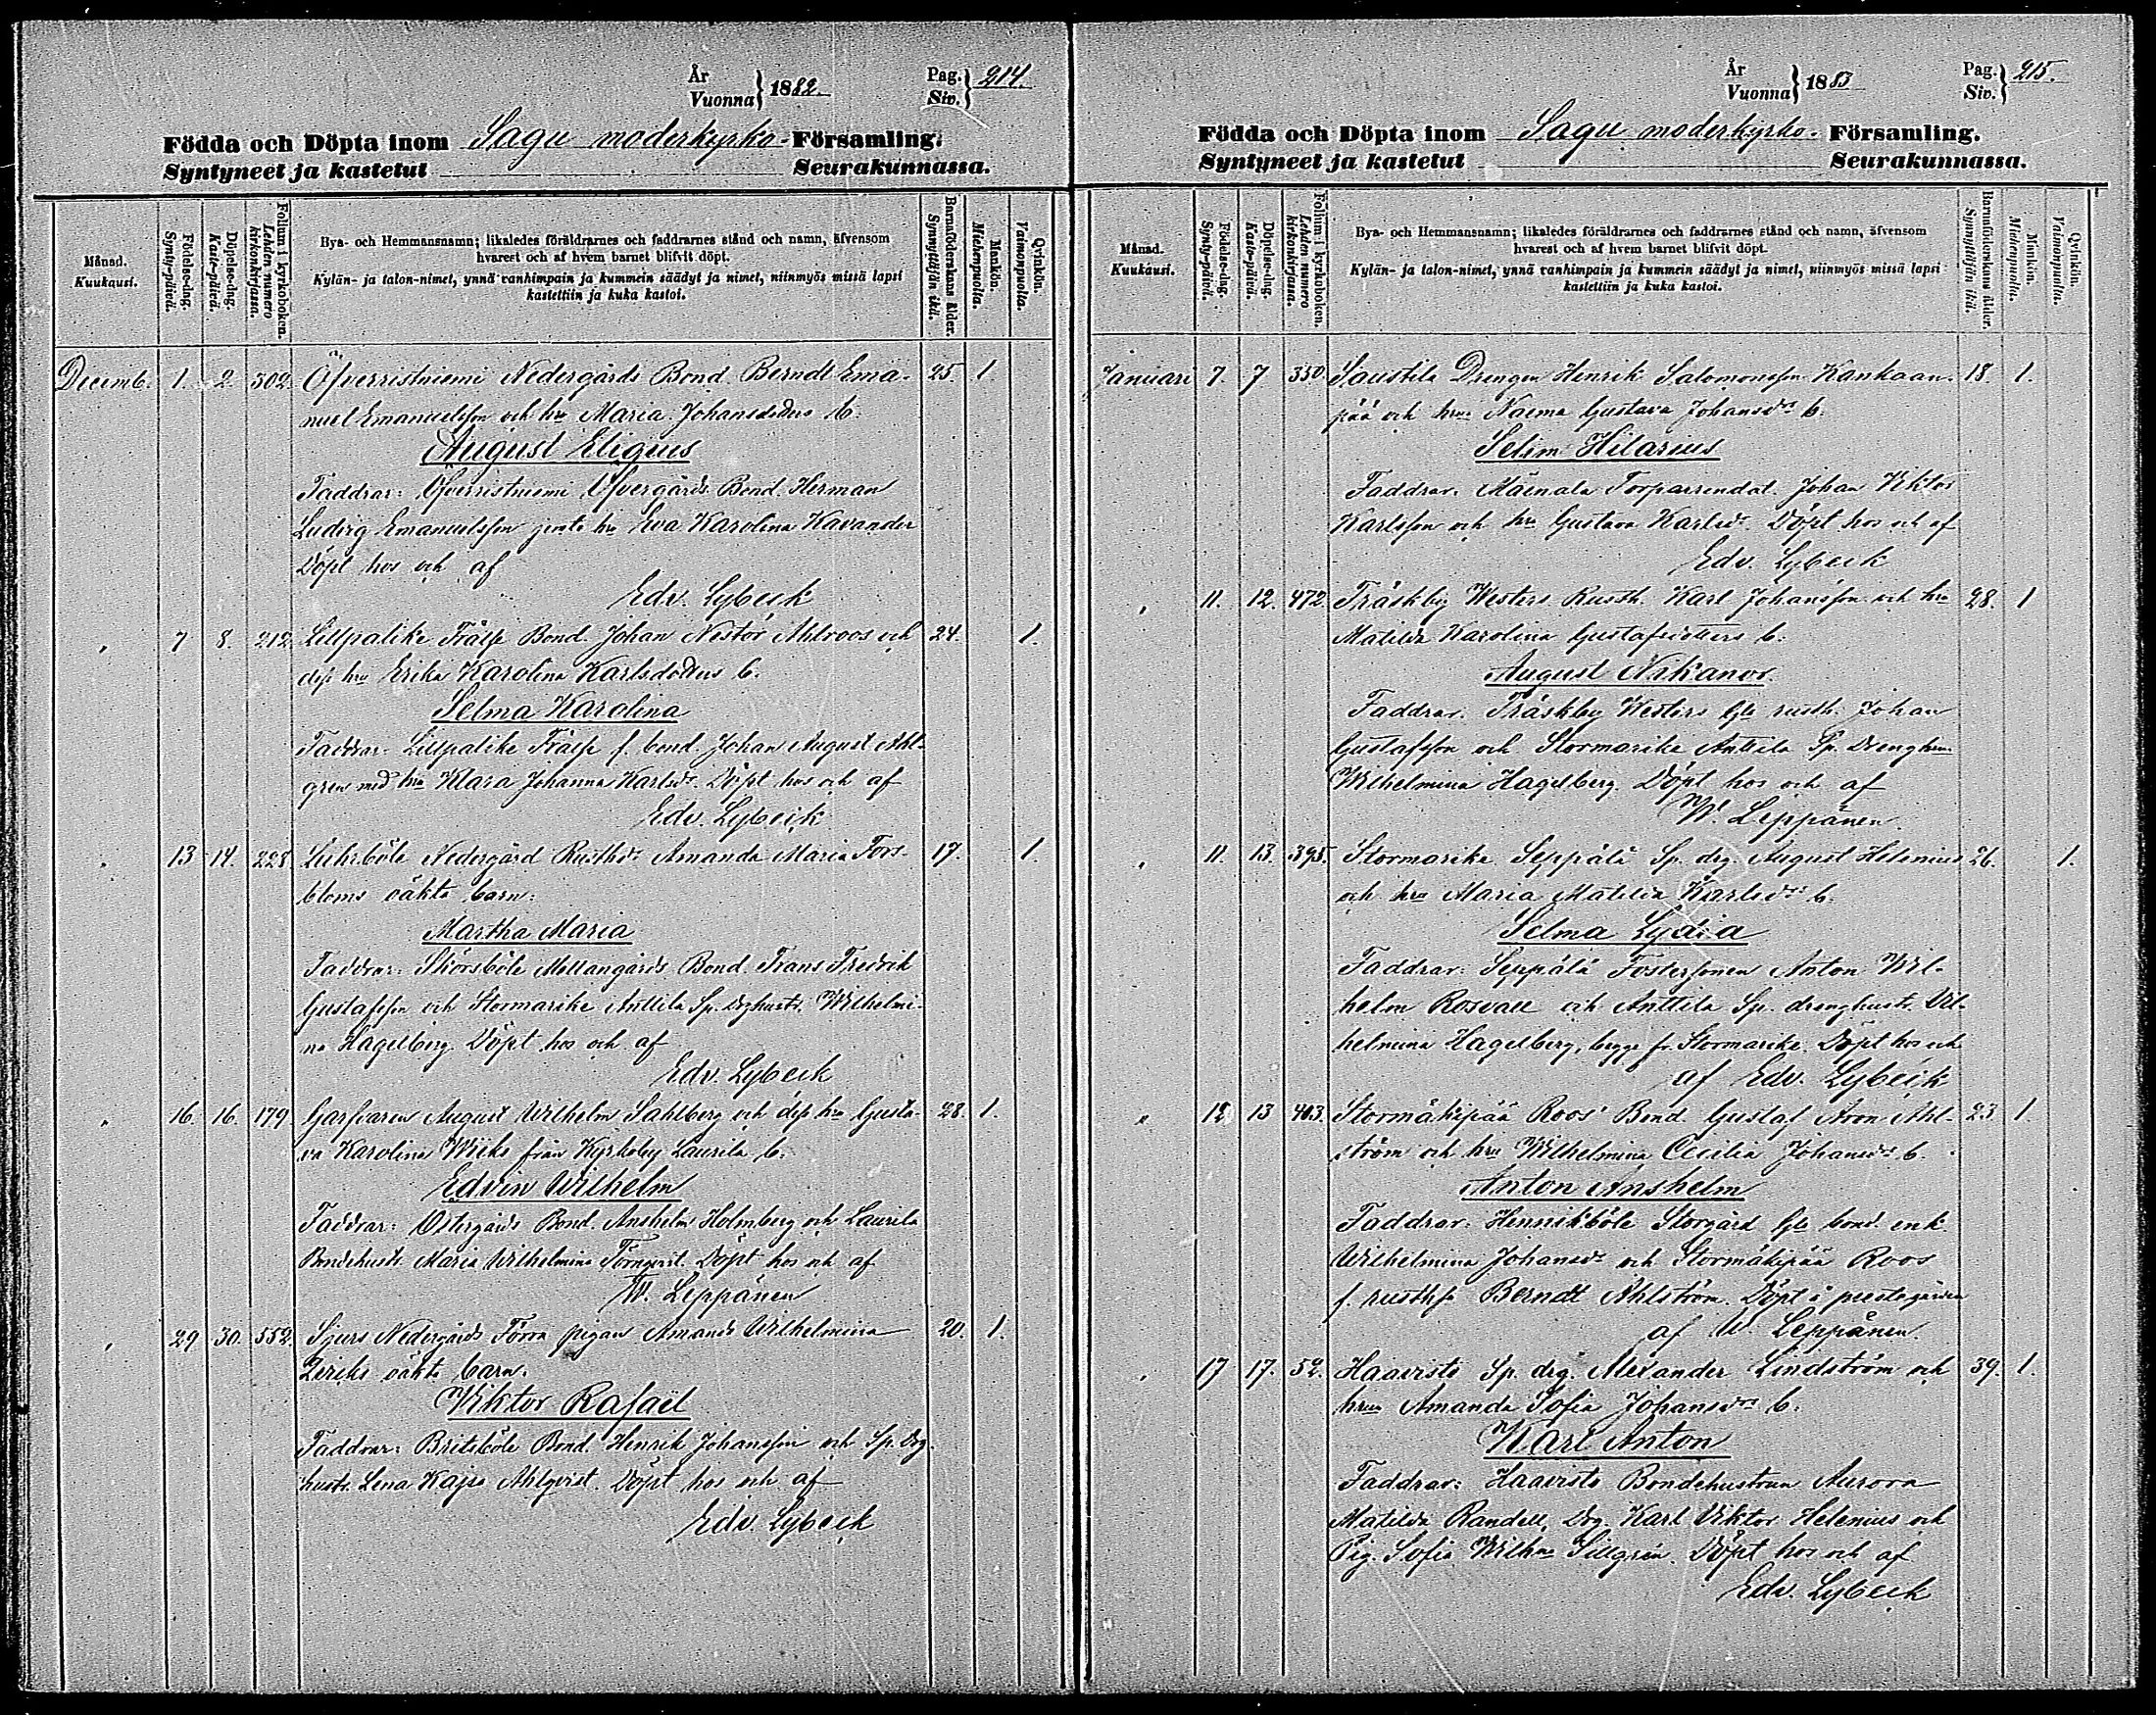 År
Vuonna } 1882.
Pag.
Siv. } 214.
Födda och Döpta inom Sagu moderkyrko- Församling.
Syntyneet ja kastetut Seurakunnassa.
Månad.
Kuukausi.
Födelse-dag.
Synty-päivä.
Döpelse-dag.
Kaste-päivä.
Folium i kyrkoboken.
Lehden numero kirkonkirjassa.
Bya- och Hemmansnamn; likaledes föräldrarnes och faddrarnes stånd och namn, äfvensom
hvarest och af hvem barnet blifvit döpt.
Kylän- ja talon-nimet, ynnä vanhimpain ja kummein säädyt ja nimet, niinmyös missä lapsi
kastettiin ja kuka kastoi.
Barnaföderskans ålder.
Synnyttäjän ikä.
Mankön.
Miehenpuolta.
Qvinkön.
Vaimonpuolta.
Decemb. 1. 2. 302. Öfverristniemi Nedergårds Bond. Berndt Ema- 25. 1.
nuel Emanuelsson och hru Maria Johansdotters b.
August Eligius
Faddrar: Öfverristniemi Öfvergårds Bond. Herman
Ludvig Emanuelsson hru Eva Karolina Kavander
Döpt hos och af
Edv. Lybeck
" 7 8. 212. Lillpalike Frälse Bond. Johan Nestor Ahlroos och 24. 1.
dess hru Erika Karolina Karlsdotters b.
Selma Karolina
Faddrar: Lillpalike Frälse f. bond. Johan August Ahl-
gren med hru Klara Johanna Karlsdr. Döpt hos och af
Edv. Lybeck
" 13 14. 228. Nedergård Rusthdr Amanda Maria Fors- 17. 1.
bloms oäkta barn:
Martha Maria
Faddrar: Skörsböle Mellangårds Bond. Frans Fredrik
Gustafsson och Stormarike Anttila Sp. drghustr. Wilhelmi-
na Hagelberg. Döpt hos och af
Edv. Lybeck
" 16. 16. 179 Garfvaren August Wilhelm Sahlberg och dess hru Gusta- 28. 1.
va Karolina Wiiks från Kyrkoby Laurila b.
Edvin Wilhelm
Faddrar: Östergårds Bond. Anshelm Holmberg och Laurila
Bondehustr. Maria Wilhelmina Törnqvist. Döpt hos och af
W. Leppänen
" 29 30. 552. Nedergårds Förra pigans Amanda Wilhelmina 20. 1.
oäkta barn.
Viktor Rafaël
Faddrar: Britsböle Bond. Henrik Johansson och Sp. drg
hustr. Lena Kajsa Ahlqvist. Döpt hos och af
Edv. Lybeck
År
Vuonna } 1883
Pag.
Siv. } 215.
Födda och Döpta inom Sagu moderkyrko- Församling.
Syntyneet ja kastetut Seurakunnassa.
Månad.
Kuukausi.
Födelse-dag.
Synty-päivä.
Döpelse-dag.
Kaste-päivä.
Folium i kyrkoboken.
Lehden numero kirkonkirjassa.
Bya- och Hemmansnamn; likaledes föräldrarnes och faddrarnes stånd och namn, äfvensom
hvarest och af hvem barnet blifvit döpt.
Kylän- ja talon-nimet, ynnä vanhimpain ja kummein säädyt ja nimet, niinmyös missä lapsi
kastettiin ja kuka kastoi.
Barnaföderskans ålder.
Synnyttäjän ikä.
Mankön.
Miehenpuolta.
Qvinkön.
Vaimonpuolta.
Januari 7. 7 350 Saustila Drengen Henrik Salomonsson Kankaan- 18. 1.
pää och hrus Naema Gustava Johansdrs b.
Selim Hilarius
Faddrar: Mäenala Torparrendat. Johan Viktor
Karlsson och hru Gustava Karlsdr. Döpt hos och af
Edv. Lybeck
" 11. 12. 472 Träskby Westers Rusth. Karl Johansson och hru 28. 1
Matilda Karolina Gustafsdotters b.
August Nikanor
Faddrar: Träskby Westers rusth. Johan
Gustafsson och Stormarike Anttila Sp. drenghru
Wilhelmina Hagelberg. Döpt hos och af
W. Leppänen.
" 11. 13. 395. Stormarike Seppälä Sp. drg. August Helenius 26. 1.
och hru Maria Matilda Karlsdrs b.
Selma Lydia
Faddrar: Seppälä Fostersonen Anton Wil-
helm Rosvall och Anttila Sp. drenghustr. Vil-
helmina Hagelberg, begge fr. Stormarike. Döpt hos och
af Edv. Lybeck
" 12 13 403. Stormäkipää Roos Bond. Gustaf Aron Ahl- 23 1.
ström och hru Wilhelmina Cecilia Johansdrs b.
Anton Anshelm
Faddrar: Hennikböle Storgård bond. enk.
Wilhelmina Johansdr och Stormäkipää Roos
f. rusths Berndt Ahlström. Döpt i prestgården
af W. Leppänen.
" 17 17. 52. Haavisto Sp. drg. Alexander Lindström och 39. 1.
hrus Amanda Sofia Johansdrs b.
Karl Anton
Faddrar: Haavisto Bondehustrun Aurora
Matilda Randell, Drg. Karl Viktor Helenius och
Pig. Sofia Wilhna Sillgrén. Döpt hos och af
Edv. Lybeck